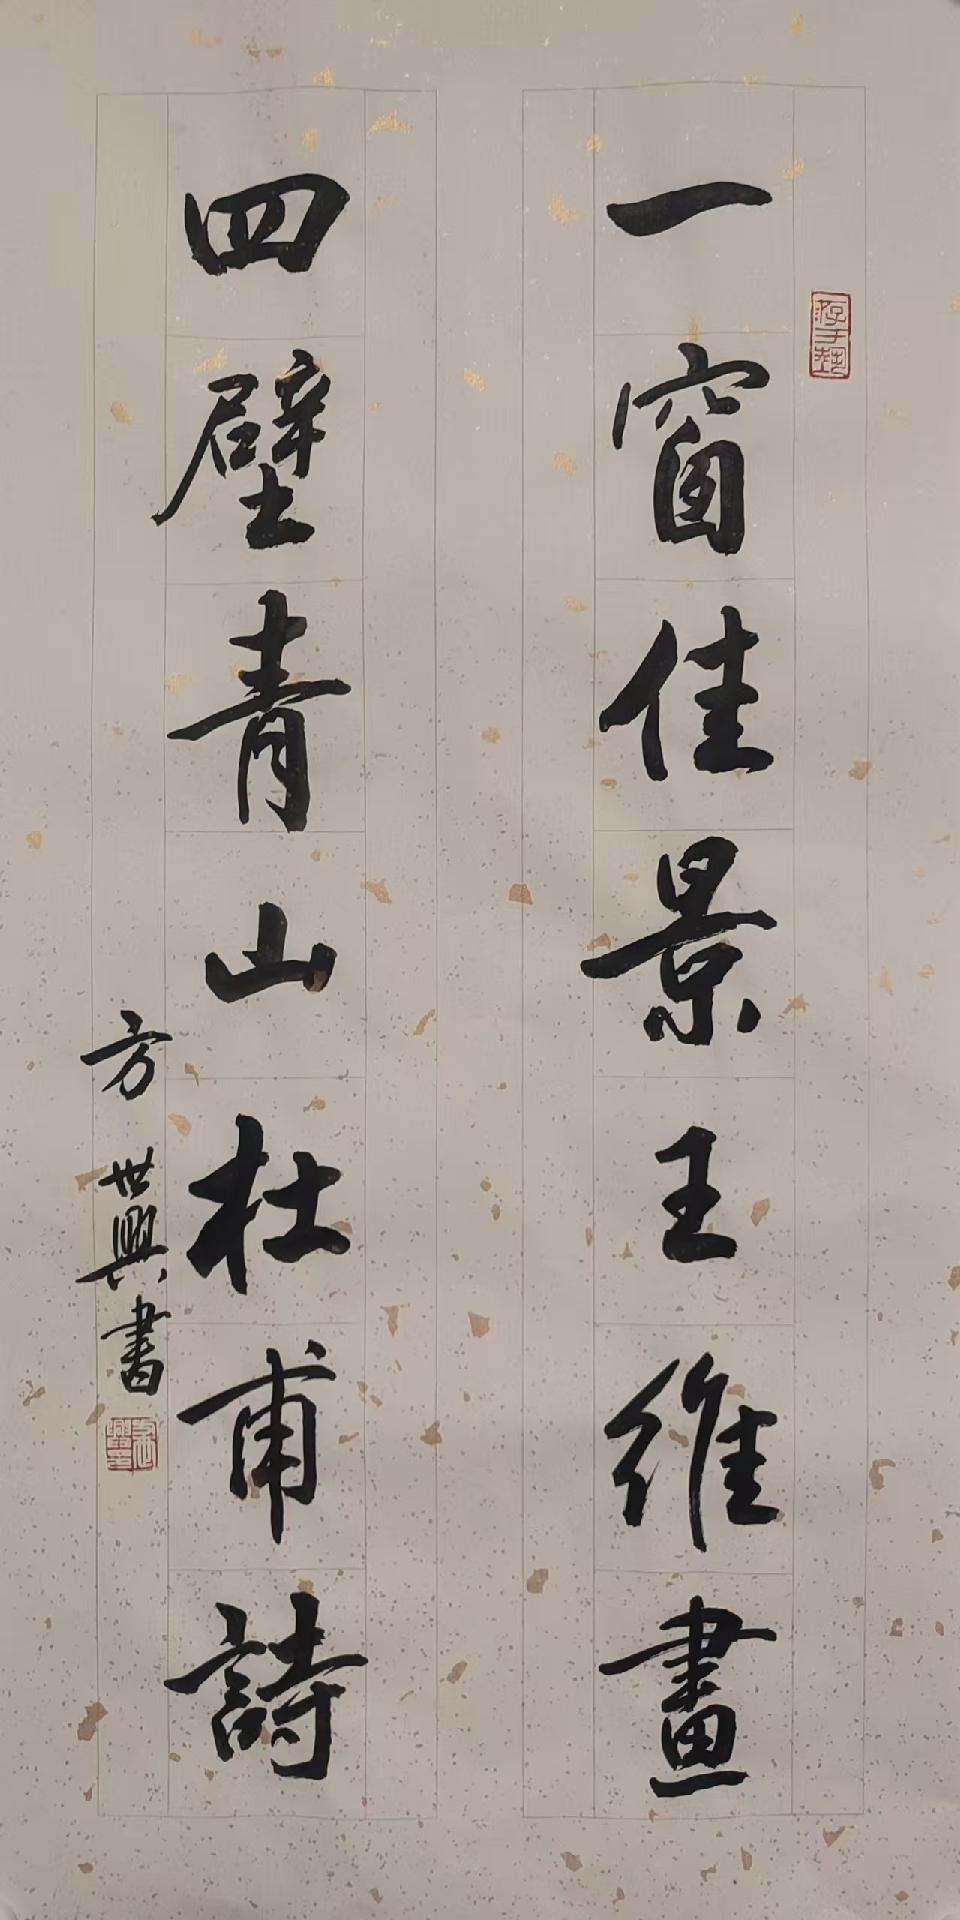 一窗佳景王維畫
四壁青山杜甫詩
方世興書